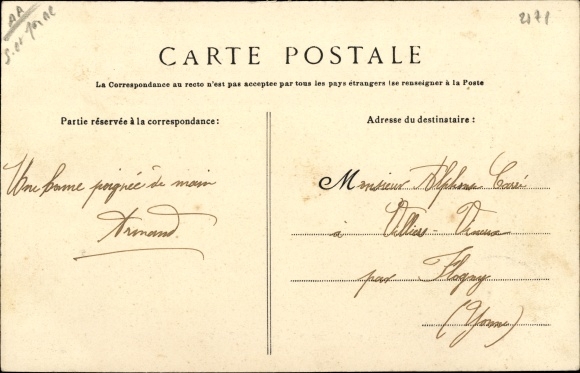 AA
S. et
2171
CARTE POSTALE
La Correspondance au recto n'est pas acceptee par tous les pays étrangers (se renseigner à la Poste
Partie réservée à la correspondance:
Adresse du destinataire:
Une bonne poignée de main
Armand.
Monsieur Alphonse Caré
à Villiers-Vineux
par Flogny
(Yonne)